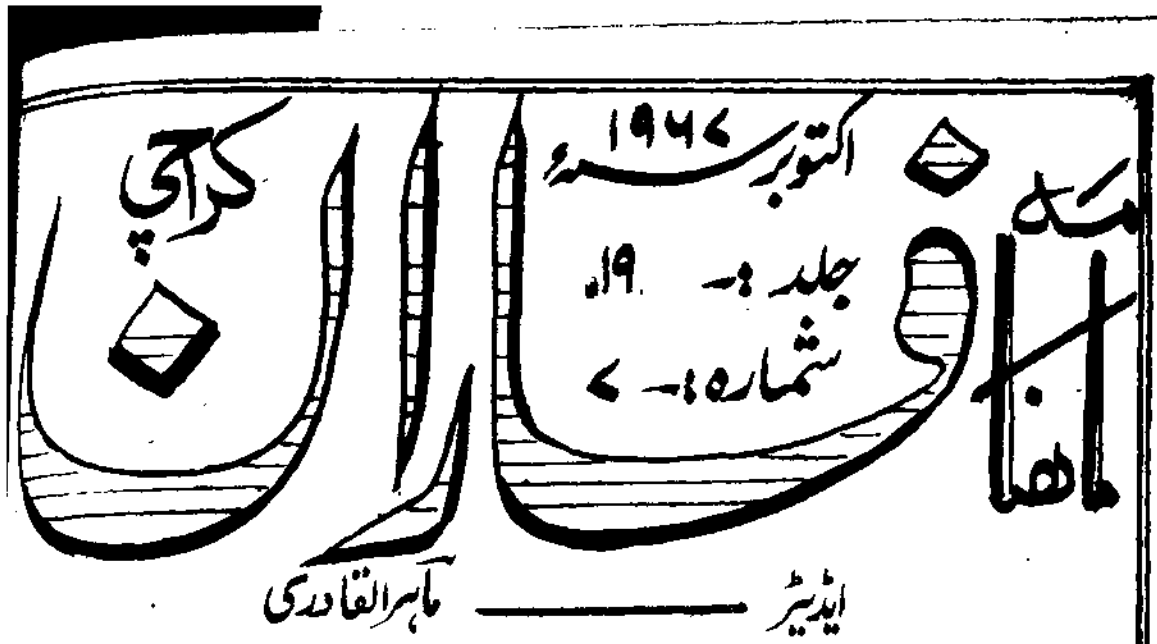 ماہنامہ
فاران
کراچی
اکتوبر سنہ ۱۹۶۷ء
جلد :- ۱۹
شمارہ :- ۷
ایڈیٹر ——— ماہر القادری